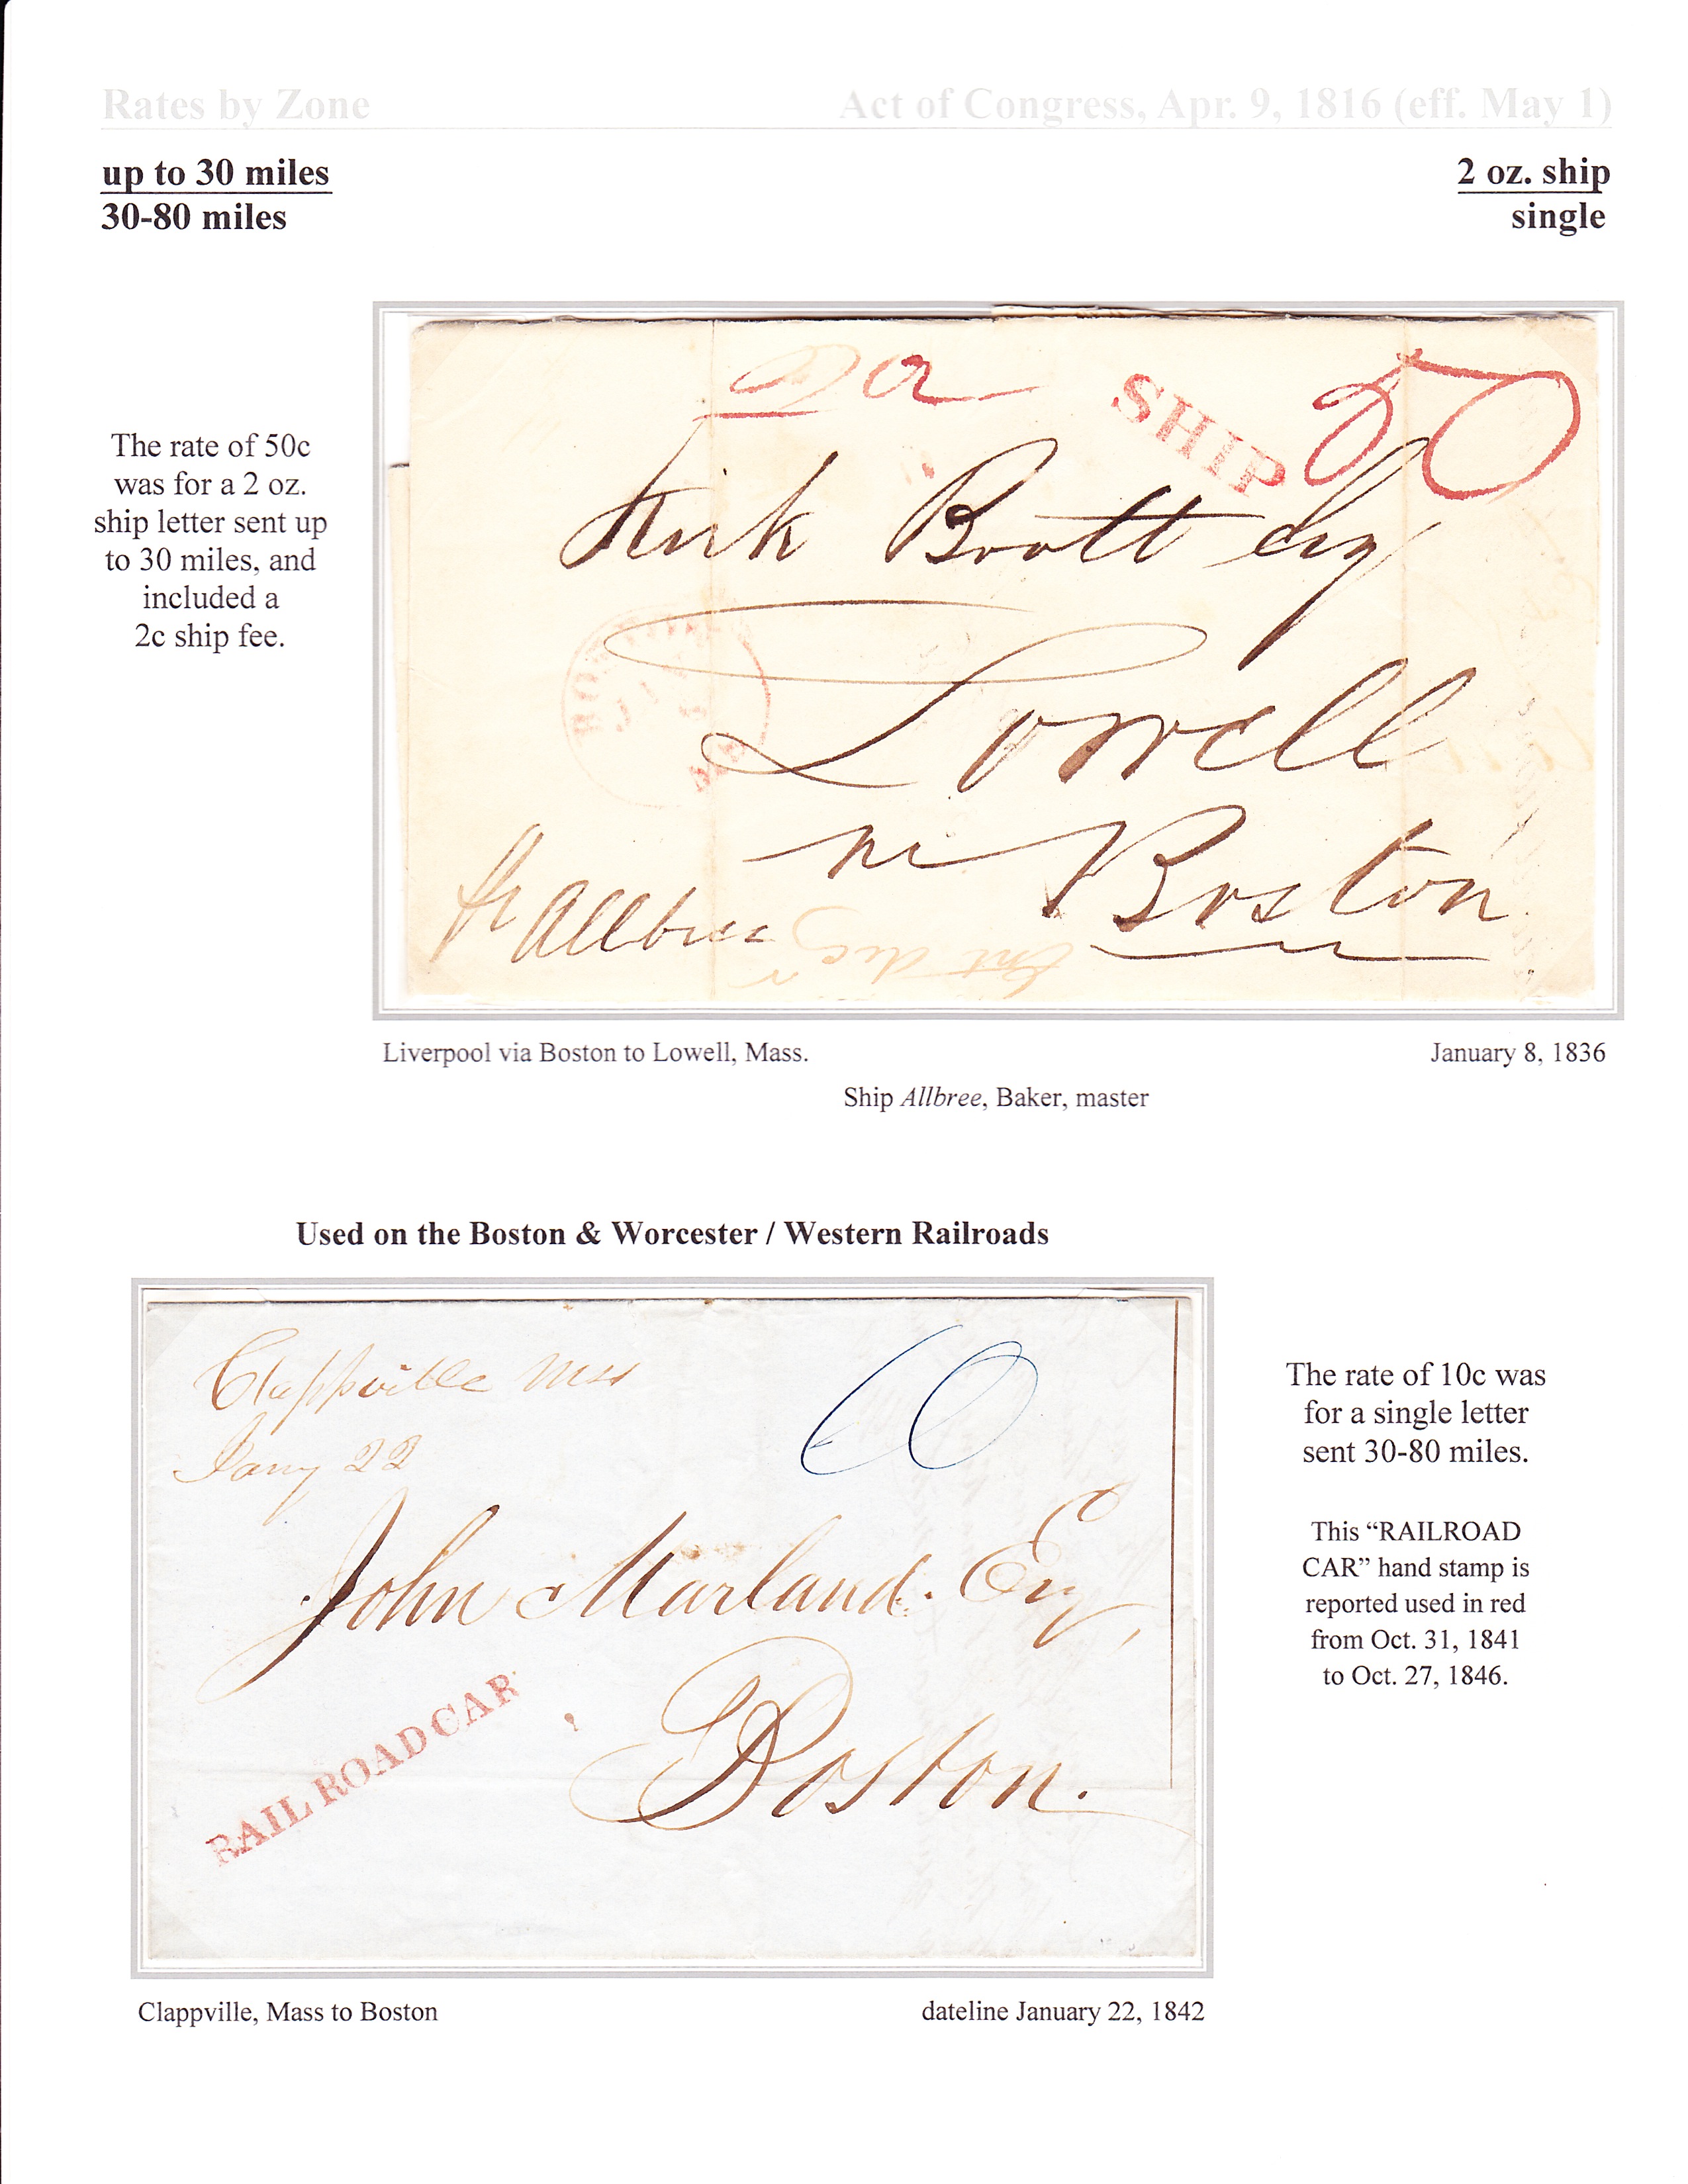 Rates by Zone Act of Congress, Apr. 9, 1816 (eff. May 1)
up to 30 miles 2 oz. ship
30-80 miles single
The rate of 50c
was for a 2 oz.
ship letter sent up
to 30 miles, and
included a
2c ship fee.
SHIP 50
Kirk Boott Esq
Lowell
nr Boston
pr Allbree
Liverpool via Boston to Lowell, Mass. January 8, 1836
Ship Allbree, Baker, master
Used on the Boston & Worcester / Western Railroads
Clappville Mss 10
Jany 22
John Marland. Esq,
RAILROAD CAR
Boston.
The rate of 10c was
for a single letter
sent 30-80 miles.
This “RAILROAD
CAR” hand stamp is
reported used in red
from Oct. 31, 1841
to Oct. 27, 1846.
Clappville, Mass to Boston dateline January 22, 1842